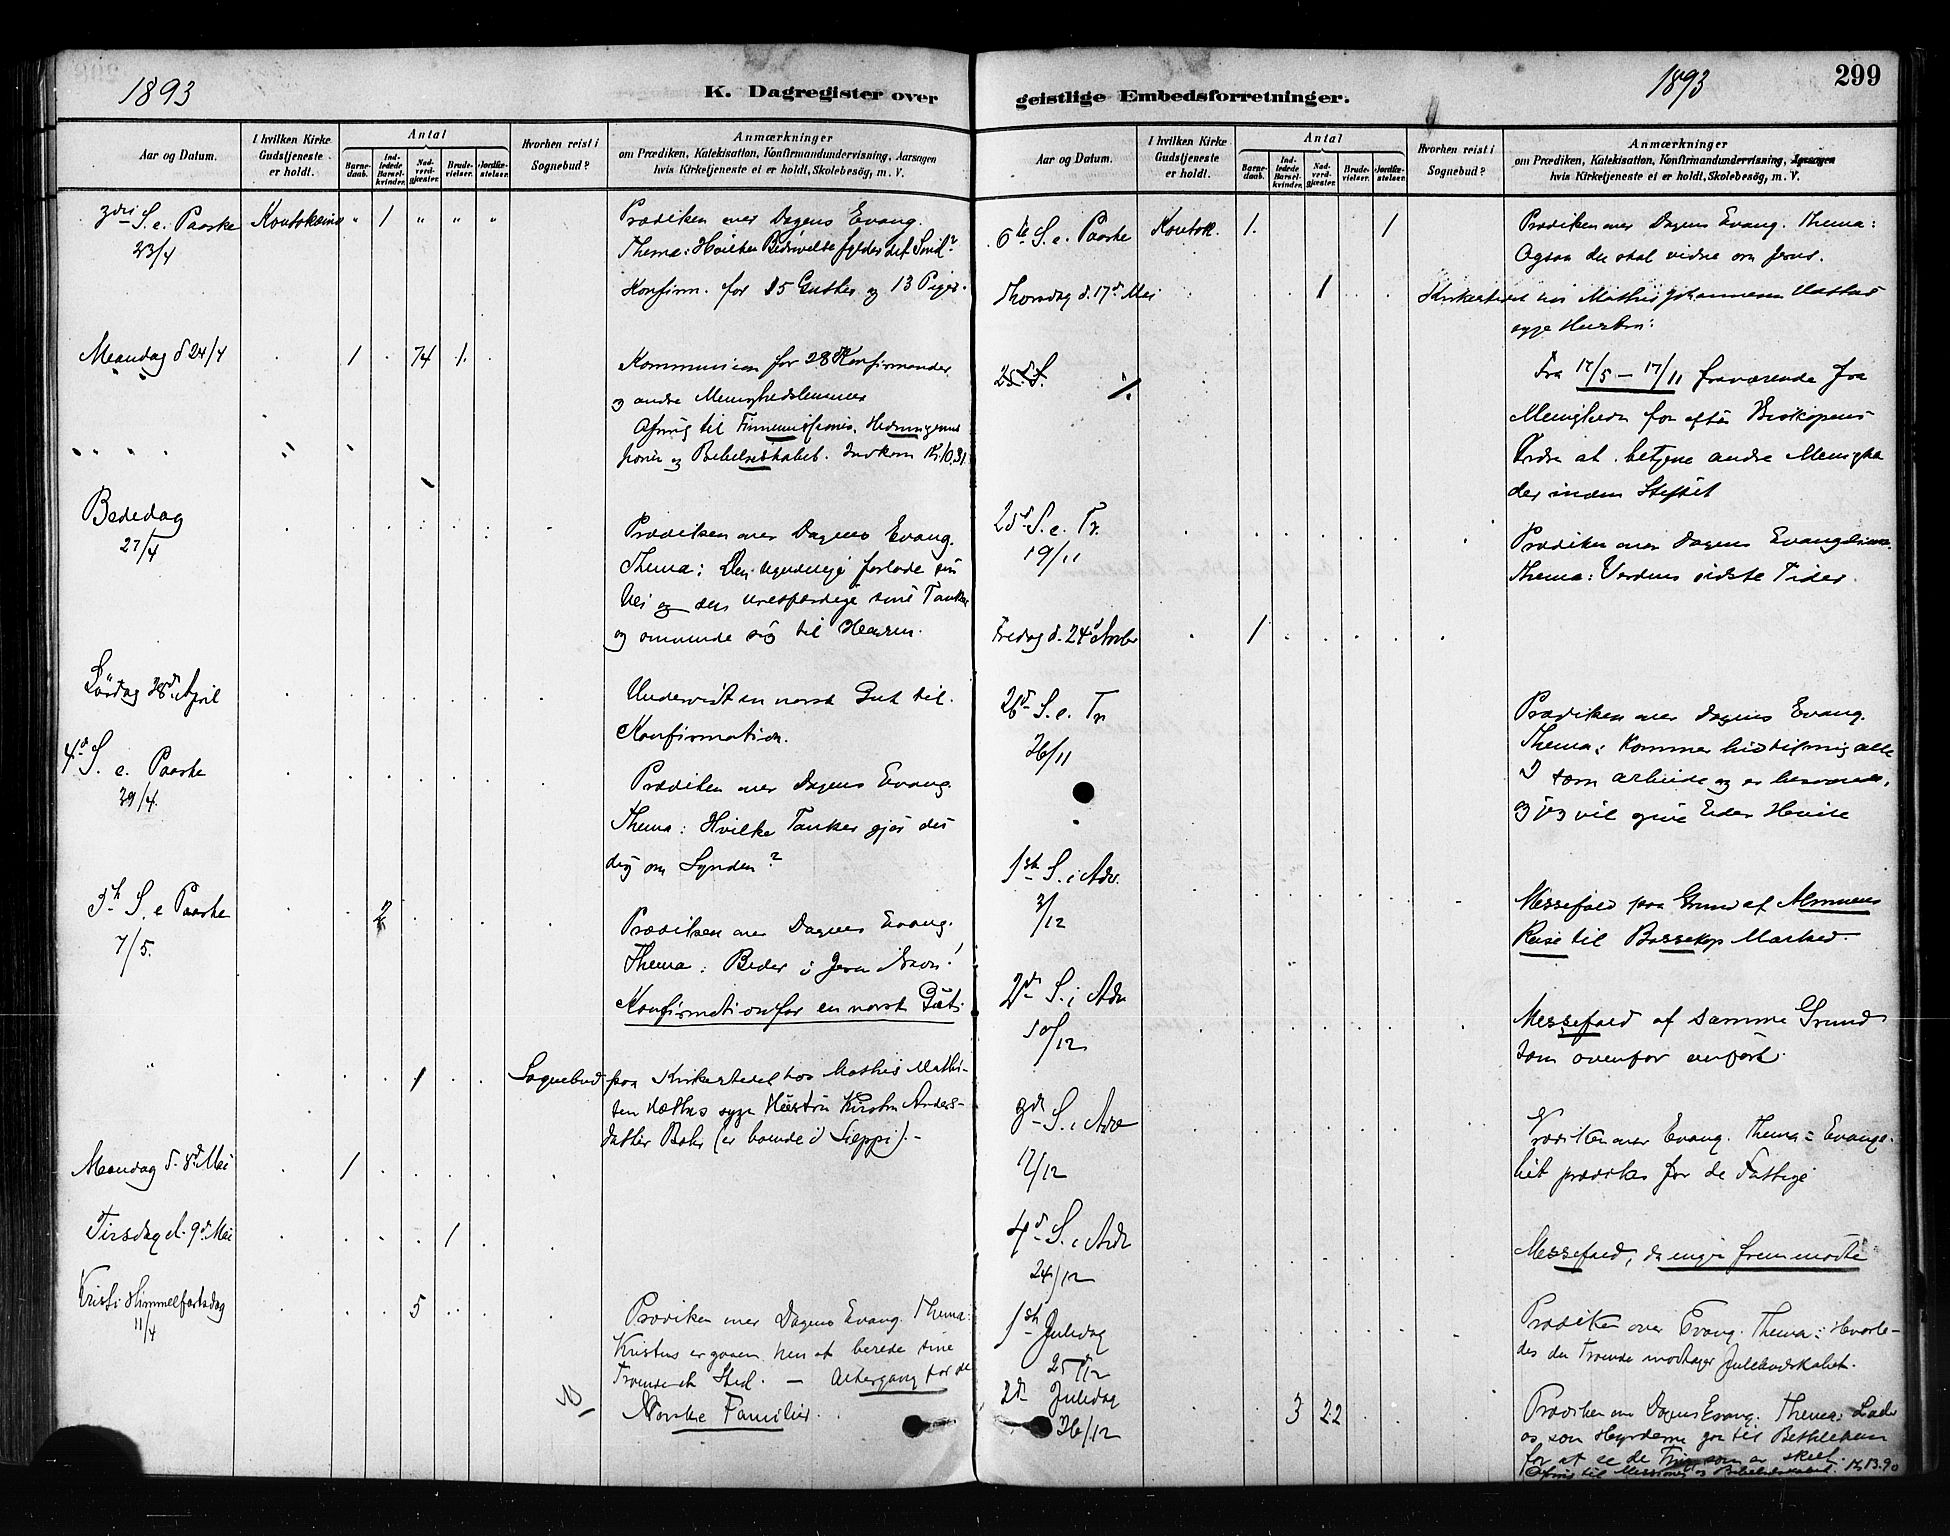 1893
K. Dagregister over
Aar og Datum.
I hvilken Kirke Gudstjeneste er holdt.
Antal
Barne-daab.
Ind-ledede Barsel-kvinder.
Nad-verd-gjæster.
Brude-vielser.
Jordfæ-stelser.
Hvorhen reist i Sognebud?
Anmærkninger
om Prædiken, Katekisation, Konfirmandundervisning, Aarsagen
hvis Kirketjeneste ei er holdt, Skolebesög, m. V.
3die S. e. Paaske Koutokeino " 1 " " " Prædiken over Dagens Evang.
23/4 Thema: Hvilken Bedrøvelse fylder dit Sind?
Konfirm. for 15 Gutter og 13 Piger.
Mandag d 24/4 1 74 1. Kommunion for 28 Konfirmander
og andre Menighedslemmer
Ofring til Finnemissionen, Hedningemis
sionen og Bibelselskabet. Indkom Kr. 10,31
Bededag Prædiken over Dagens Evang.
27/4 Thema: Den ugudelige forlade sin
Vei og den uretfærdige sine Tanker
og omvende sig til Herren.
Lørdag 28d April Undervist en norsk Gut til
Konfirmation.
4d S. e. Paaske Prædiken over Dagens Evang.
29/4. Thema: Hvilke Tanker gjør du
dig om Synden?
5te S. e Paaske 2 Prædiken over Dagens Evang.
7/5. Thema: Beder i Jesu Navn!
Konfirmation for en norsk Gut.
1 Sognebud paa Kirkestedet hos Mathis Mathi-
sen Hættas syge Hustru Kirsten Anders-
datter Bahr (er boende i Sieppi).-
Mandag d. 8d Mai 1
Tirsdag d. 9d Mai 1
Kristi Himmelfartsdag 5 Prædiken over Dagens Evang. Thema:
11/4 Kristus er gaaen hen at berede sine
Troende et Sted. — Altergang for de
Norske Familier.
geistlige Embedsforretninger.
1893
299
Aar og Datum.
I hvilken Kirke Gudstjeneste er holdt.
Antal
Barne-daab.
Ind-ledede Barsel-kvinder.
Nad-verd-gjæster.
Brude-vielser.
Jordfæ-stelser.
Hvorhen reist i Sognebud?
Anmærkninger
om Prædiken, Katekisation, Konfirmandundervisning, Aarsagen
hvis Kirketjeneste ei er holdt, Skolebesög, m. V.
6te S. e. Paaske Koutok. 1. 1 Prædiken over Dagens Evang. Thema:
Ogsaa du skal vidne om Jesus.
Thorsdag d. 17d Mai 1 Kirkestedet hos Mathis Johannesen Hættas
syge Hustru:
25. d S. Fra 17/5 — 17/11 fraværende fra
Menigheden for efter Biskopens
Ordre at betjene andre Menighe
der inden Stiftet
25d S. e. Tr. Prædiken over Dagens Evangelium.
19/11 Thema: Verdens sidste Tider.
Fredag d. 24d Novbr 1
26d S. e. Tr Prædiken over Dagens Evang.
26/11 Thema: Kommer hid til mig alle
I som arbeide og er besværede,
og jeg vil give Eder Hvile
1ste S. i Adv. Messefald paa Grund af Almuens
3/12 Reise til Bossekop Marked.
2d S. i Adv Messefald af samme Grund
10/12 som ovenfor anført.
3die S. i Adv Prædiken over Evang. Thema: Evange-
17/12 liet prædikes for de Fattige
4d S. i Adv Messefald, da ingen fremmødte
24/12
1ste Juledag Prædiken over Evang. Thema: Hvorle-
25/12 des du Troende modtager Julebudskabet.
2d Juledag 3 22 Prædiken over Dagens Evang. Thema: Lader
26/12 os som Hyrderne gaa til Bethlehem
for at se de Ting som er skeet.
Ofring til Missionen og Bibelselskabet. Kr 13.90